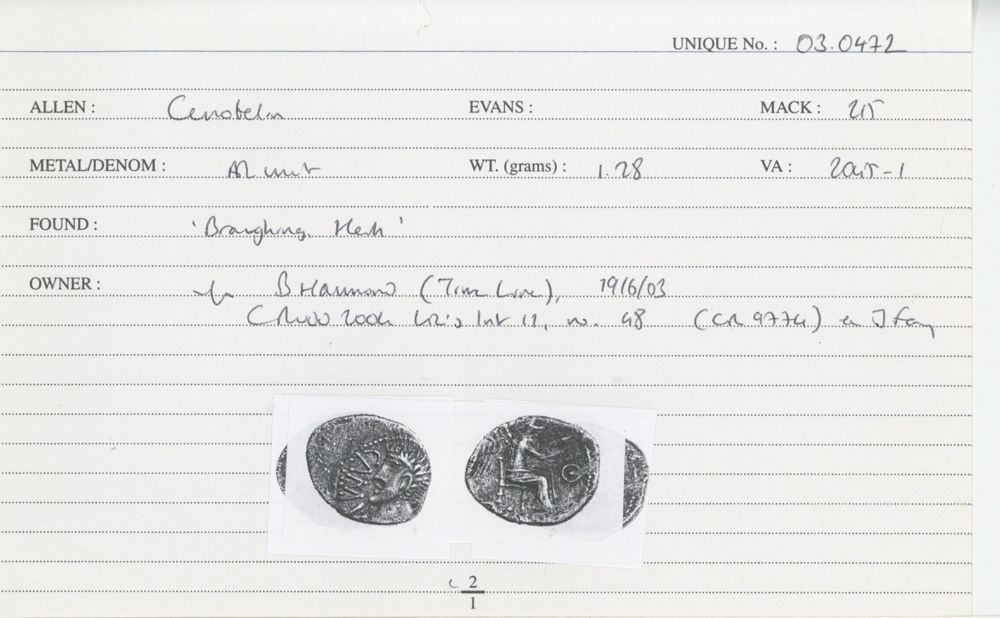 UNIQUE No. : 03.0472
ALLEN : Cunobelin EVANS : MACK : 215
METAL/DENOM : AR unit WT. (grams) : 1.28 VA : 2045-1
FOUND : 'Braughing, Herts'
OWNER : B Hammond (Time Line), 19/6/03
Liz's no. 48 (CR 977A) ex J Fay
2
1